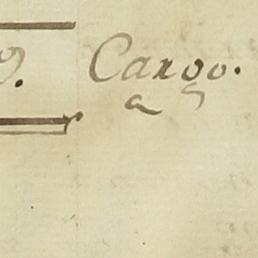 9. Cargo.